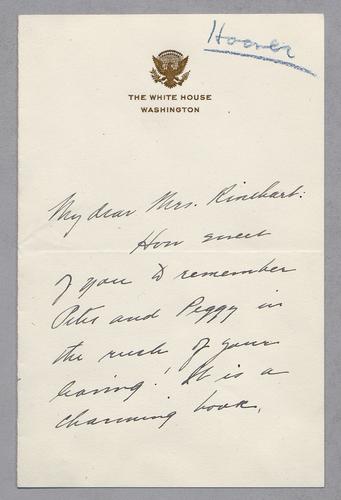 Hoover
THE WHITE HOUSE
WASHINGTON
My dear Mrs. Rinehart:
How sweet
of you to remember
Peter and Peggy in
the rush of your
leaving! It is a
charming book.